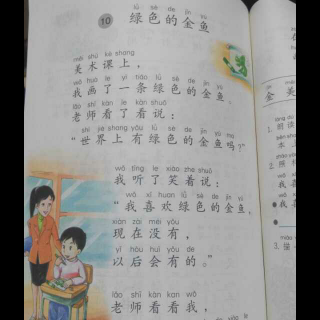 lǜ sè de jīn yú
10 绿色的金鱼
měi shù kè shang
美术课上，
wǒ huà le yì tiáo lǜ sè de jīn yú
我画了一条绿色的金鱼。
lǎo shī kàn le kàn shuō
老师看了看说：
shì jiè shàng yǒu lǜ sè de jīn yú ma
“世界上有绿色的金鱼吗？”
wǒ tīng le xiào zhe shuō
我听了笑着说：
wǒ xǐ huan lǜ sè de jīn yú
“我喜欢绿色的金鱼，
xiàn zài méi yǒu
现在没有，
yǐ hòu huì yǒu de
以后会有的。”
lǎo shī kàn kan wǒ
老师看看我，
金 美
1. 朗读
2.
我
我
3.